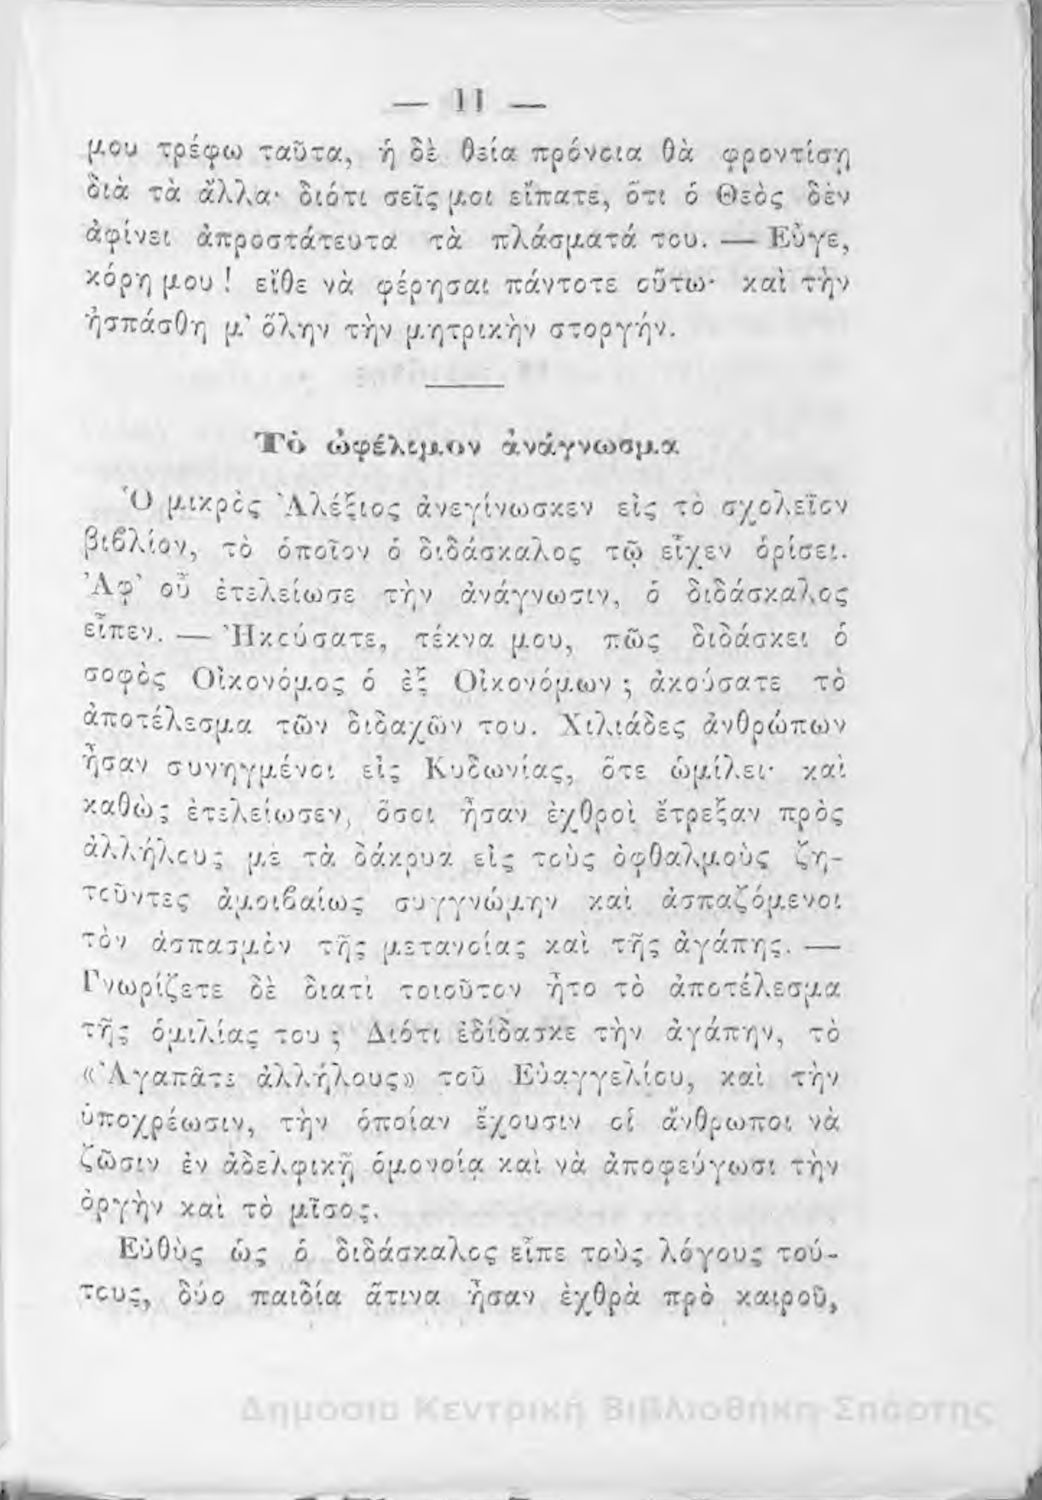 — 11 —
μου τρέφω ταῦτα, ἡ δὲ θεία πρόνοια θὰ φροντίσῃ
διὰ τὰ ἄλλα· διότι σεῖς μοι εἴπατε, ὅτι ὁ Θεὸς δὲν
ἀφίνει ἀπροστάτευτα τὰ πλάσματά του. — Εὖγε,
κόρη μου ! εἴθε νὰ φέρησαι πάντοτε οὕτω· καὶ τὴν
ἠσπάσθη μ' ὅλην τὴν μητρικὴν στοργήν.
Τὸ ὠφέλιμον ἀνάγνωσμα
Ὁ μικρὸς Ἀλέξιος ἀνεγίνωσκεν εἰς τὸ σχολεῖον
βιβλίον, τὸ ὁποῖον ὁ διδάσκαλος τῷ εἶχεν ὁρίσει.
Ἀφ' οὗ ἐτελείωσε τὴν ἀνάγνωσιν, ὁ διδάσκαλος
εἶπεν. — Ἠκούσατε, τέκνα μου, πῶς διδάσκει ὁ
σοφὸς Οἰκονόμος ὁ ἐξ Οἰκονόμων ; ἀκούσατε τὸ
ἀποτέλεσμα τῶν διδαχῶν του. Χιλιάδες ἀνθρώπων
ἦσαν συνηγμένοι εἰς Κυδωνίας, ὅτε ὡμίλει· καὶ
καθὼς ἐτελείωσεν, ὅσοι ἦσαν ἐχθροὶ ἔτρεξαν πρὸς
ἀλλήλους μὲ τὰ δάκρυα εἰς τοὺς ὀφθαλμοὺς ζη-
τοῦντες ἀμοιβαίως συγγνώμην καὶ ἀσπαζόμενοι
τὸν ἀσπασμὸν τῆς μετανοίας καὶ τῆς ἀγάπης. —
Γνωρίζετε δὲ διατὶ τοιοῦτον ἦτο τὸ ἀποτέλεσμα
τῆς ὁμιλίας του ; Διότι ἐδίδασκε τὴν ἀγάπην, τὸ
«Ἀγαπᾶτε ἀλλήλους» τοῦ Εὐαγγελίου, καὶ τὴν
ὑποχρέωσιν, τὴν ὁποίαν ἔχουσιν οἱ ἄνθρωποι νὰ
ζῶσιν ἐν ἀδελφικῇ ὁμονοίᾳ καὶ νὰ ἀποφεύγωσι τὴν
ὀργὴν καὶ τὸ μῖσος.
Εὐθὺς ὡς ὁ διδάσκαλος εἶπε τοὺς λόγους τού-
τους, δύο παιδία ἅτινα ἦσαν ἐχθρὰ πρὸ καιροῦ,
Δημόσια Κεντρική Βιβλιοθήκη Σπάρτης